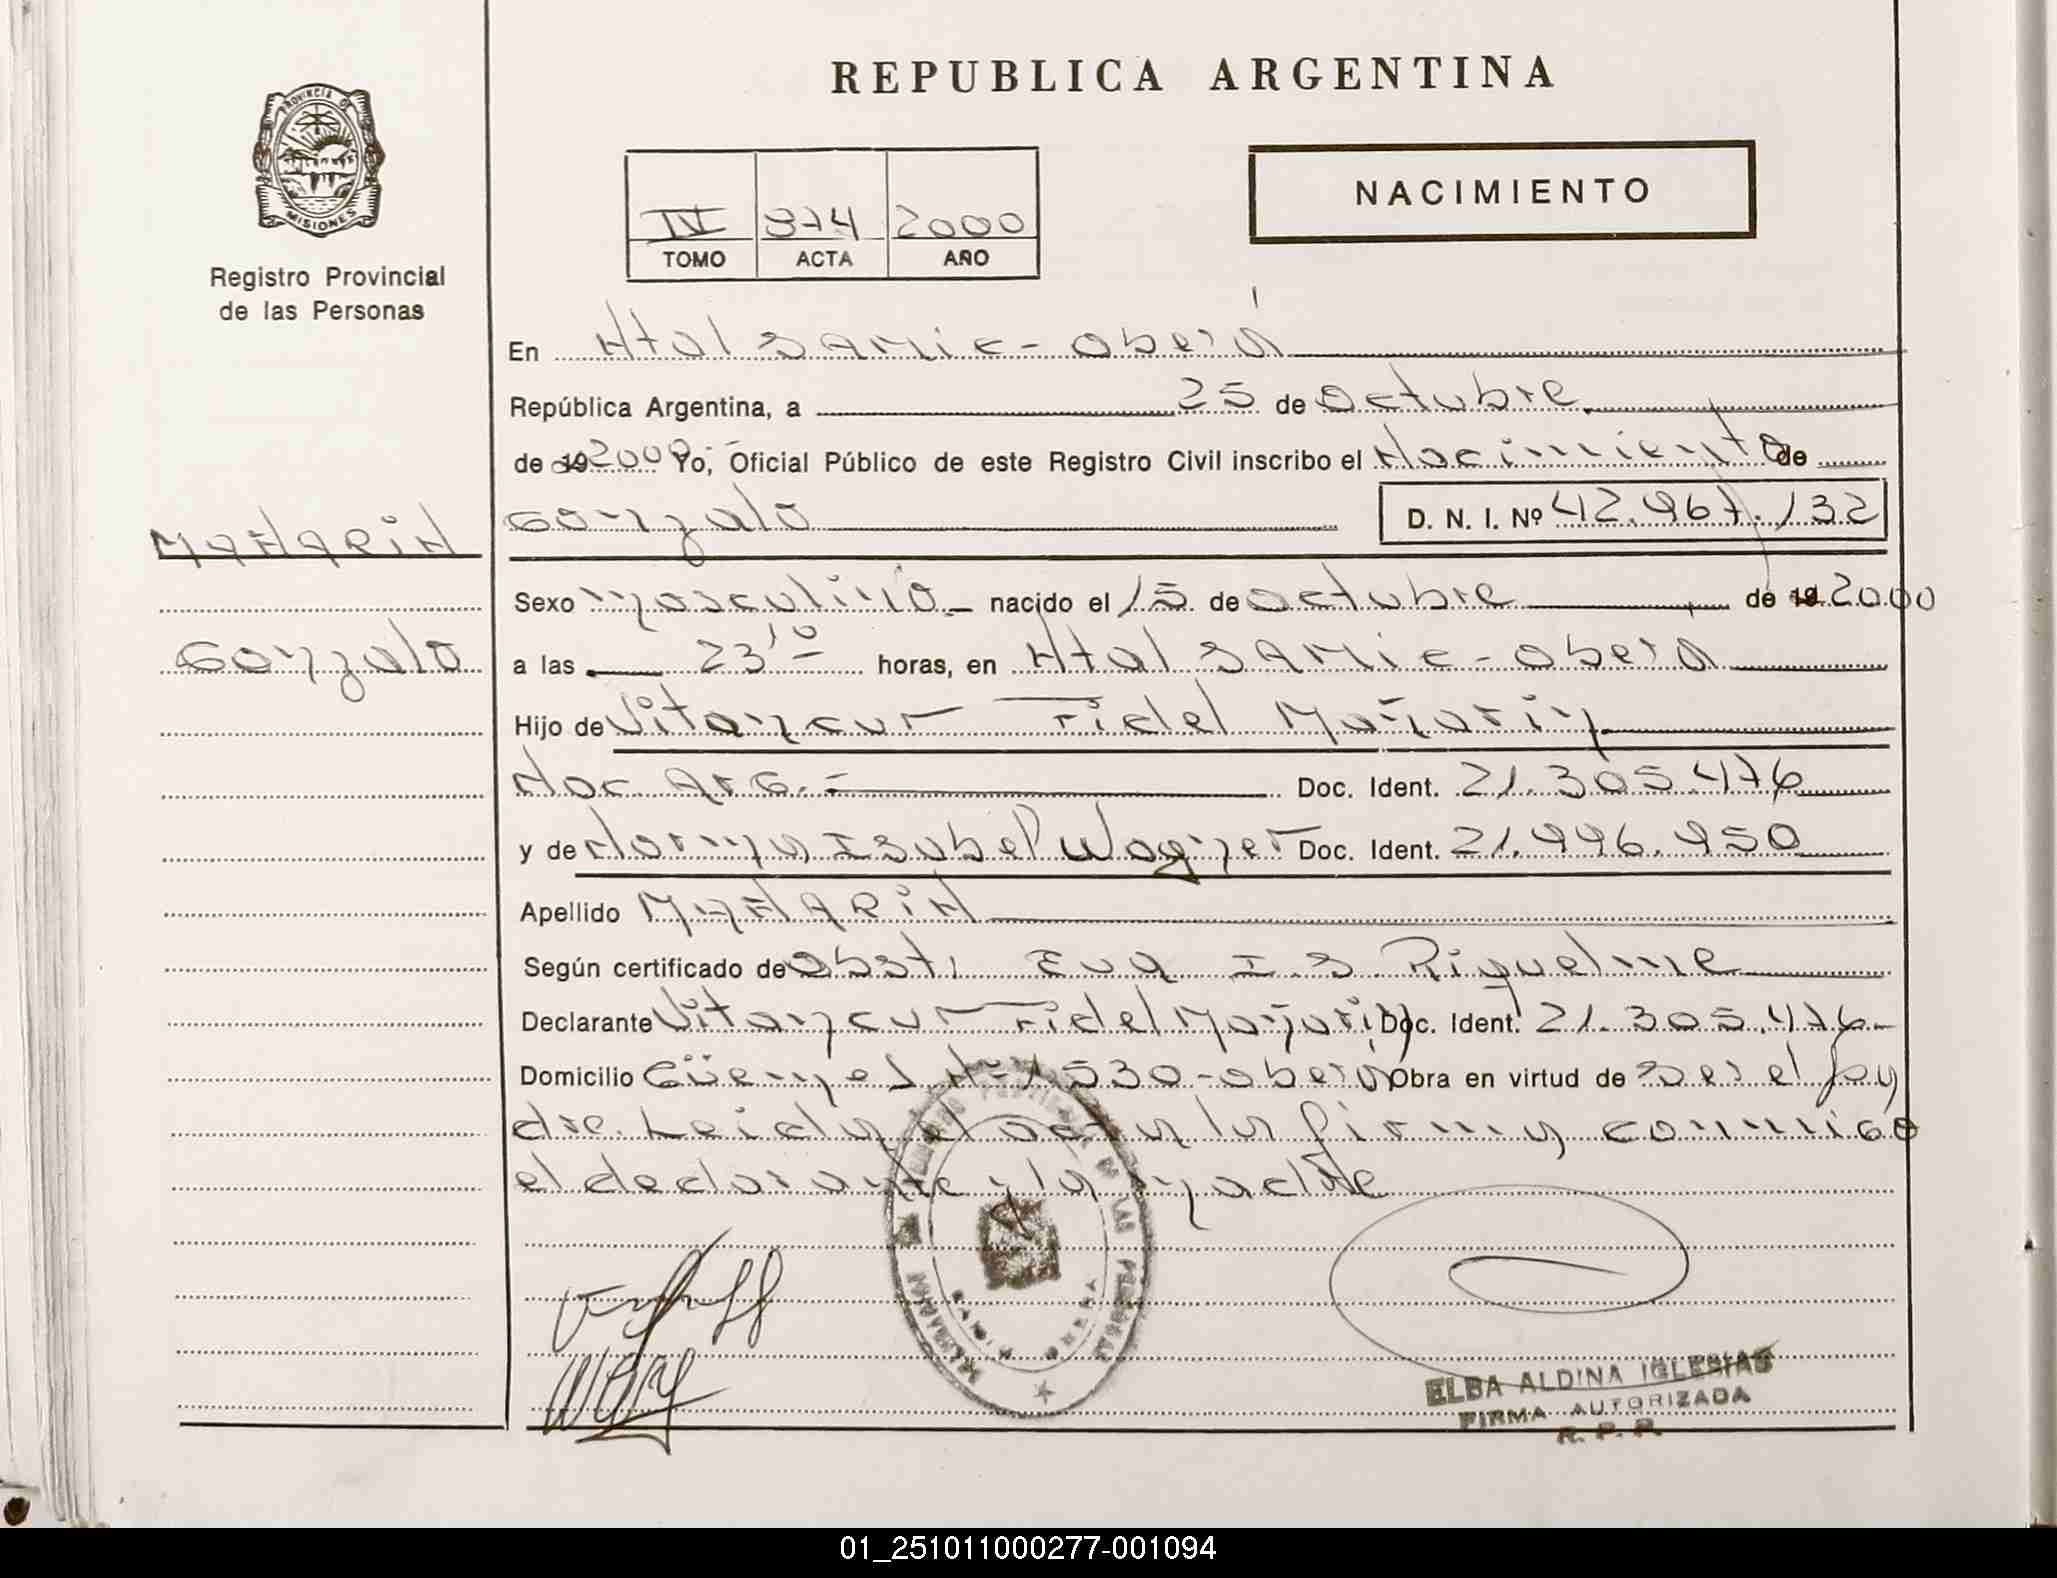 REPUBLICA ARGENTINA
PROVINCIA DE
MISIONES
Registro Provincial
de las Personas
NACIMIENTO
IV 974 2000
TOMO ACTA AÑO
En Htal SAMIC - Oberá
República Argentina, a 25 de Octubre
de 19 2000 Yo, Oficial Público de este Registro Civil inscribo el Nacimiento de
Gonzalo D. N. I. Nº 42.967.132
MAÑARIN
Sexo masculino nacido el 15 de Octubre de 19 2000
Gonzalo
a las 23,10 horas, en Htal SAMIC - Oberá
Hijo de Fidel Mañarin
Nac. Arg. = Doc. Ident. 21.305.476
y de Norma Isabel Wagner Doc. Ident. 21.996.950
Apellido MAÑARIN
Según certificado de Obst. Eva I. S. Riquelme
Declarante Fidel Mañarin Doc. Ident. 21.305.476
Domicilio Güemes Nº 1530 - Oberá Obra en virtud de ser el pa
dre. Leida el acta la firma conmigo
el declarante y la madre
ELBA ALDINA IGLESIAS
FIRMA AUTORIZADA
R. P. P.
01_251011000277-001094